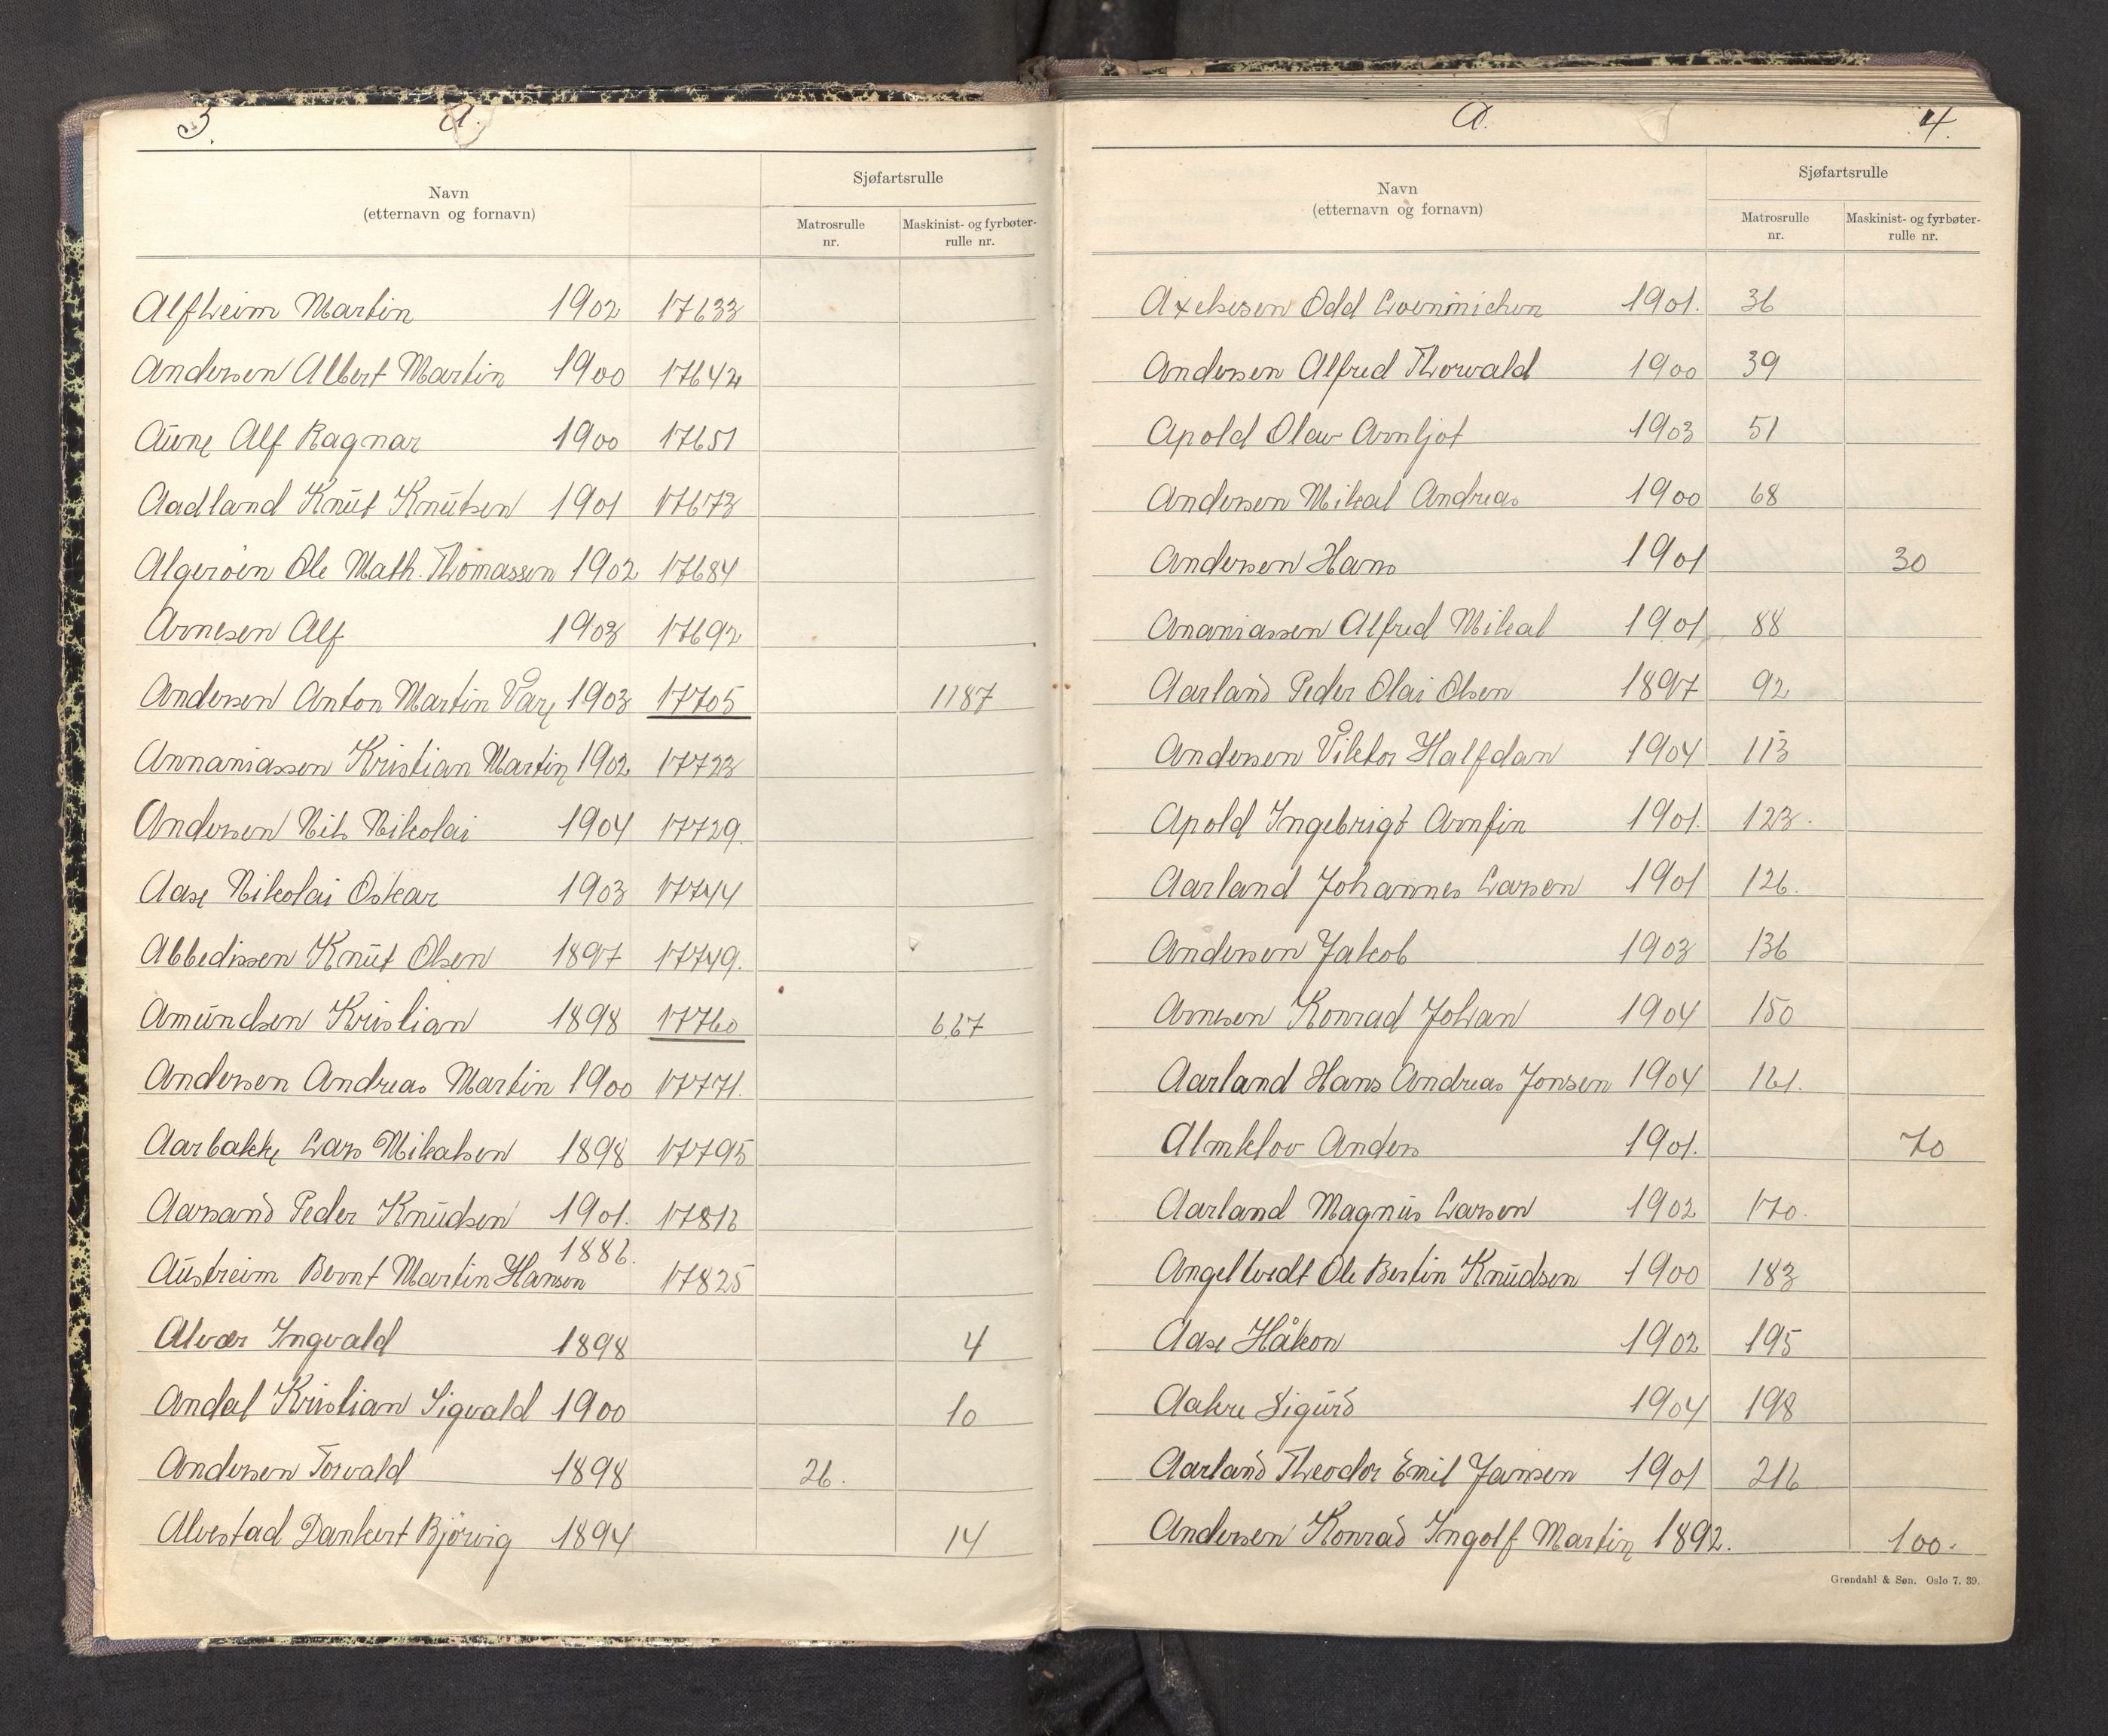 3.
A.
Navn
(etternavn og fornavn)
Sjøfartsrulle
Matrosrulle
nr.
Maskinist- og fyrbøter-
rulle nr.
Alfheim Martin 1902 17633
Andersen Albert Martin 1900 17642
Aune Alf Ragnar 1900 17651
Aadland Knut Knutsen 1901 17673
Algerøen Ole Math. Thomassen 1902 17684
Arnesen Alf 1903 17692
Andersen Anton Martin Våge 1903 17705 1187
Annaniassen Kristian Martin 1902 17723
Andersen Nils Nikolai 1904 17729.
Aase Nikolai Oskar 1903 17744
Abbedissen Knut Olsen 1897 17749.
Amundsen Kristian 1898 17760 667
Andersen Andreas Martin 1900 17771.
Aarbakke Lars Mikalsen 1898 17795
Aarsand Peder Knudsen 1901. 17816
Austreim Bernt Martin Hansen 1886. 17825
Alvær Ingvald 1898 4
Andal Kristian Sigvald 1900 10
Andersen Torvald 1898 26.
Alvestad Dankert Bjørvig 1894 14
A.
4.
Navn
(etternavn og fornavn)
Sjøfartsrulle
Matrosrulle
nr.
Maskinist- og fyrbøter-
rulle nr.
Axelsen Odd 1901. 36
Andersen Alfred Thorvald 1900 39
Apold Olav Arnljot 1903 51
Andersen Mikal Andreas 1900 68
Andersen Hans 1901 30
Ananiassen Alfred Mikal 1901 88
Aarland Peder Olai Olsen 1897 92
Andersen Viktor Halfdan 1904 113
Apold Ingebrigt Arnfin 1901. 123.
Aarland Johannes Larsen 1901 126.
Andersen Jakob 1903 136
Arnesen Konrad Johan 1904 150
Aarland Hans Andreas Jonsen 1904 161.
Almklov Anders 1901. 70
Aarland Magnus Larsen 1902 170.
Angeltvedt Ole Bertin Knudsen 1900 183
Aase Håkon 1902 195
Aakre Sigurd 1904 198
Aarland Theodor Emil Jansen 1901 216
Andersen Konrad Ingolf Martin 1892. 100.
Grøndahl & Søn. Oslo 7. 39.